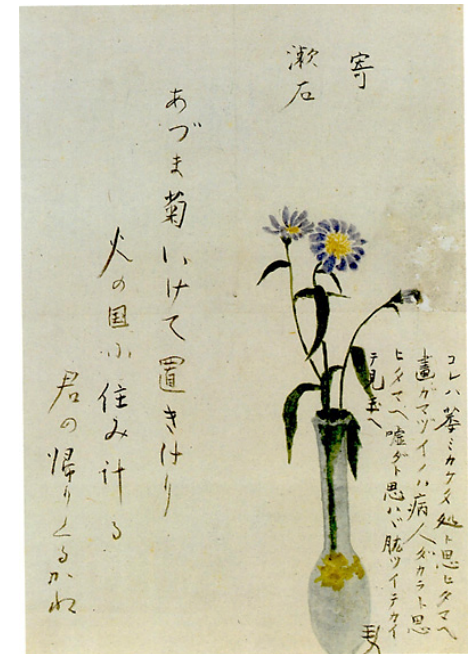 寄
漱石
あづま菊いけて置きけり
火の国に住みける
君の帰りくるかね
コレハ萎ミカケタ処ト思ヒタマヘ
畫ガマヅイノハ病人ダカラト思
ヒタマヘ嘘ダト思ハバ肱ツイテカイ
テ見玉ヘ